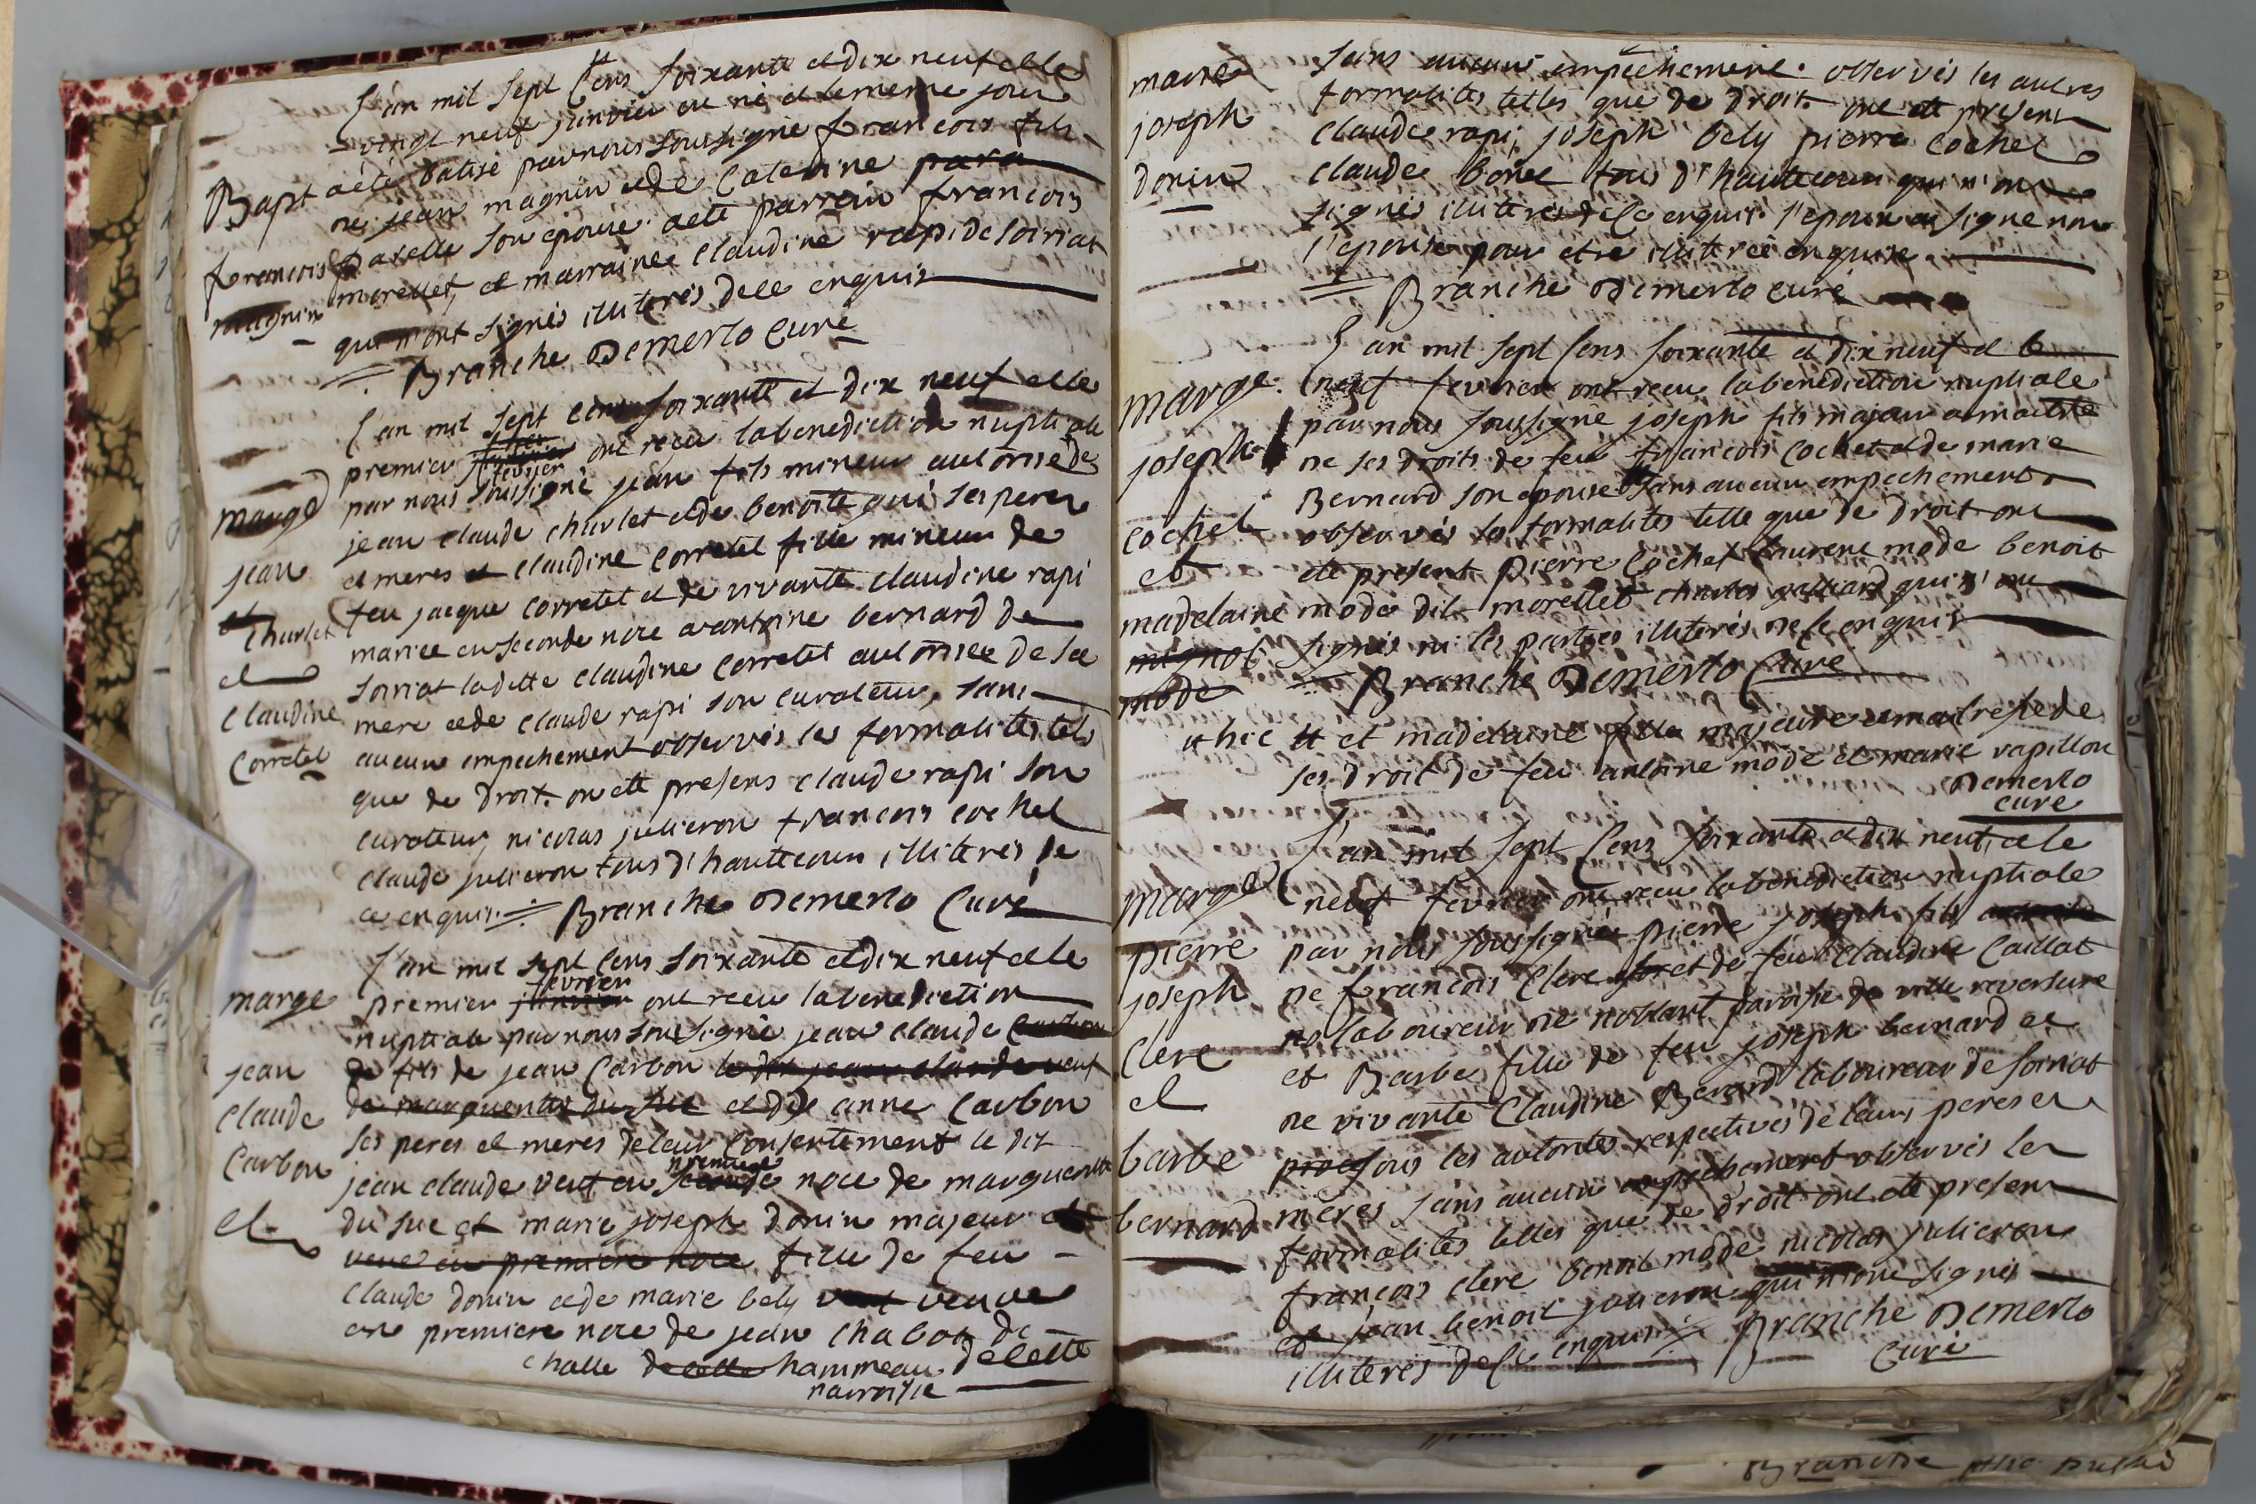 L'an mil sept Cens soixante et dix neuf et le
vingt neuf janvier est né et le meme jour
Bapt a eté batisé par nous soussigné francois fils
de jean magnin et de Caterine para
francois paselle son epouse a eté parrain francois
magnin morellet, et marraine Claudine rapi de soiriat
qui n'ont signés illiterés de ce enquis
Branche Demerlo Curé
L'an mil sept cens soixante et dix neuf et le
premier janvier fevrier ont recu la benediction nuptiale
marge par nous soussigné jean fils mineur autorisé de
jean claude charlet et de benoite gui ses peres
jean et meres et claudine corretel fille mineur de
et feu jacque corretel et de vivante claudine rapi
charlet mariee en seconde noce a antoine bernard de
et soiriat ladite claudine corretel autorisee de sa
claudine mere et de claude rapi son curateur, sans
Corretel aucun empechement observés les formalités tels
que de droit. on eté presens claude rapi son
curateur, nicolas julieron francois cochet
claude julieron tous d'hautecour illiterés de
ce enquis. Branche Demerlo Curé
L'an mil sept cens soixante et dix neuf et le
marge premier janvier fevrier ont recu la benediction
nuptiale par nous soussigné jean claude Carbon
jean de fils de jean Carbon le dit jean claude veuf
claude de marguerite du suc et de anne Carbon
ses peres et meres de leur consentement le dit
Carbon jean claude veuf en seconde premiere noce de marguerite
et du suc et marie joseph donin majeur et
veuve en premiere noce fille de feu
claude donin et de marie bely veuve
en premiere noce de jean chabot de
challe de cette hammeau de cette
parroisse
marie sans aucun empechement. observés les autres
joseph formalités telles que de droit. ont eté presens
donin claude rapi, joseph bely pierre cochet
claude borie tous d'hautecour qui n'ont
signés illiterés de ce enquis. l'epoux a signé non
l'epouse pour etre illiterée enquise.
Branche Demerlo curé
L'an mil sept Cens soixante et dix neuf et le
marge neuf fevrier ont recu la benediction nuptiale
par nous soussigné joseph fils majeur a maitre
joseph de ses droits de feu francois cochet et de marie
Bernard son epouse # sans aucun empechement
cochet observés les formalités telle que de droit ont
et eté present pierre cochet laurent mode benoit
madelaine mode dit morellet charles galliard qui n'ont
mignot signés ni les parties illiterés de ce enquis
mode Branche Demerlo Curé
# hic # et madelaine fille majeure et maitresse de
ses droit de feu antoine mode et marie rapillon
Demerlo
curé
L'an mil sept Cens soixante et dix neuf, et le
marge neuf fevrier ont recu la benediction nuptiale
pierre par nous soussignés pierre joseph fils
joseph de francois Clerc et de feu Claudine Caillat
clerc laboureur de noblant paroisse de ville reversure
et et Barbe fille de feu joseph bernard et
de vivante Claudine Berard laboureur de soiriat
barbe sous les autorités respectives de leurs peres et
bernard meres sans aucun empechement observés les
formalités telles que de droit ont eté presens
francois clerc benoit mode nicolas julieron
et jean benoit julieron qui n'ont signés
illiterés de ce enquis. Branche Demerlo
Curé